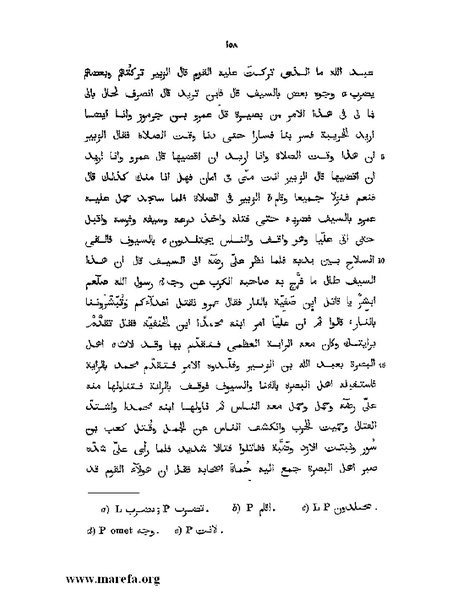 ١٥٨
عبد الله ما الذى تركت عليه القوم قال الزبير تركتهم وبعضهم
يضرب a وجوه بعض بالسيف قال فاين تريد قال انصرف لحال بالى
فما لى فى هذا الامر من بصيرة قال عمرو بن جرموز وانا ايضا
اريد الخريبة فسر بنا فسارا حتى دنا وقت الصلاة فقال الزبير
5 ان هذا وقت الصلاة وانا اريد ان اقضيها قال عمرو وانا اريد
ان اقضيها قال الزبير انت منّى فى امان فهل انا منك كذلك قال
فنعم فنزلا جميعا وقام b الزبير فى الصلاة فلما سجد حمل عليه
عمرو بالسيف فضربه حتى قتله واخذ درعه وسيفه وفرسه واقبل
حتى اتى عليا وهو واقف والناس يجتلدون c بالسيوف فالقى
10 السلاح بين يديه فلما نظر علىّ رضه الى السيف قال ان هذا
السيف طال ما فرّج به صاحبه الكرب عن وجه d رسول الله صلعم
ابشر يا قاتل ابن صفيّة بالنار فقال عمرو نقتل اعداءكم وتبشّروننا
بالنار، قالوا ثم ان عليا امر ابنه محمدا ابن الحنفيّة فقال تقدّم
برايتك وكان معه الراية العظمى فتقدّم بها وقد لاث e اهل
15 البصرة بعبد الله بن الزبير وقلّدوه الامر فتقدّم محمد بالراية
فاستقبله اهل البصرة بالقنا والسيوف فوقف بالراية فتناولها منه
علىّ رضه وحمل وحمل معه الناس ثم ناولها ابنه محمدا واشتدّ
القتال وحميت الحرب وانكشف الناس عن الجمل وقتل كعب بن
سُور وثبتت الازد وضبّة فقاتلوا قتالا شديدا فلما رأى علىّ شدّة
صبر اهل البصرة جمع اليه حُماة اصحابه فقال ان هولاء القوم قد
a) L بصرب; P تضرب. b) P اقام. c) L P
d) P omet وجه. e) P لاثت.
www.marefa.org